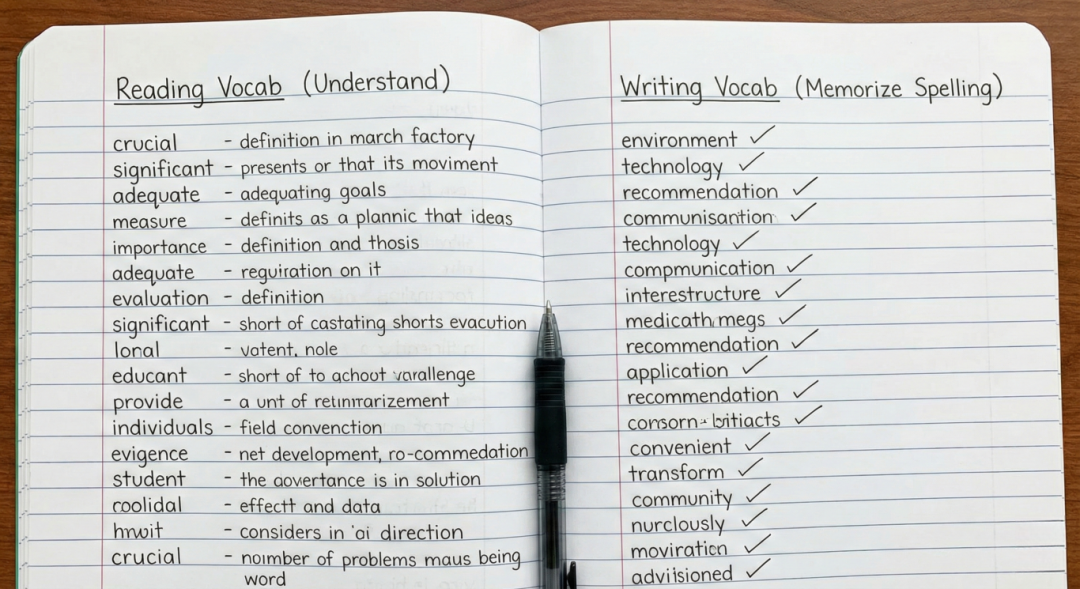 Reading Vocab (Understand)
crucial - definition in march factory
significant - presents or that its moviment
adequate - adequating goals
measure - definits as a plannic that ideas
importance - definition and thosis
adequate - reguiration on it
evaluation - definition
significant - short of castating shorts evacution
lonal - votent, nole
educant - short of to achout varallenge
provide - a unt of
individuals - field convenction
evigence - net development, ro-commedation
student - the aovertance is in solution
roolidal - effectt and data
hmoit - considers in direction
crucial - noımber of problems maus being
word
Writing Vocab (Memorize Spelling)
environment ✓
technology ✓
recommendation ✓
communisantion ✓
technology ✓
compmunication ✓
interestructure ✓
✓
recommendation ✓
application ✓
recommendation ✓
✓
convenient ✓
transform ✓
community ✓
nurclously ✓
moviration ✓
adviisioned ✓